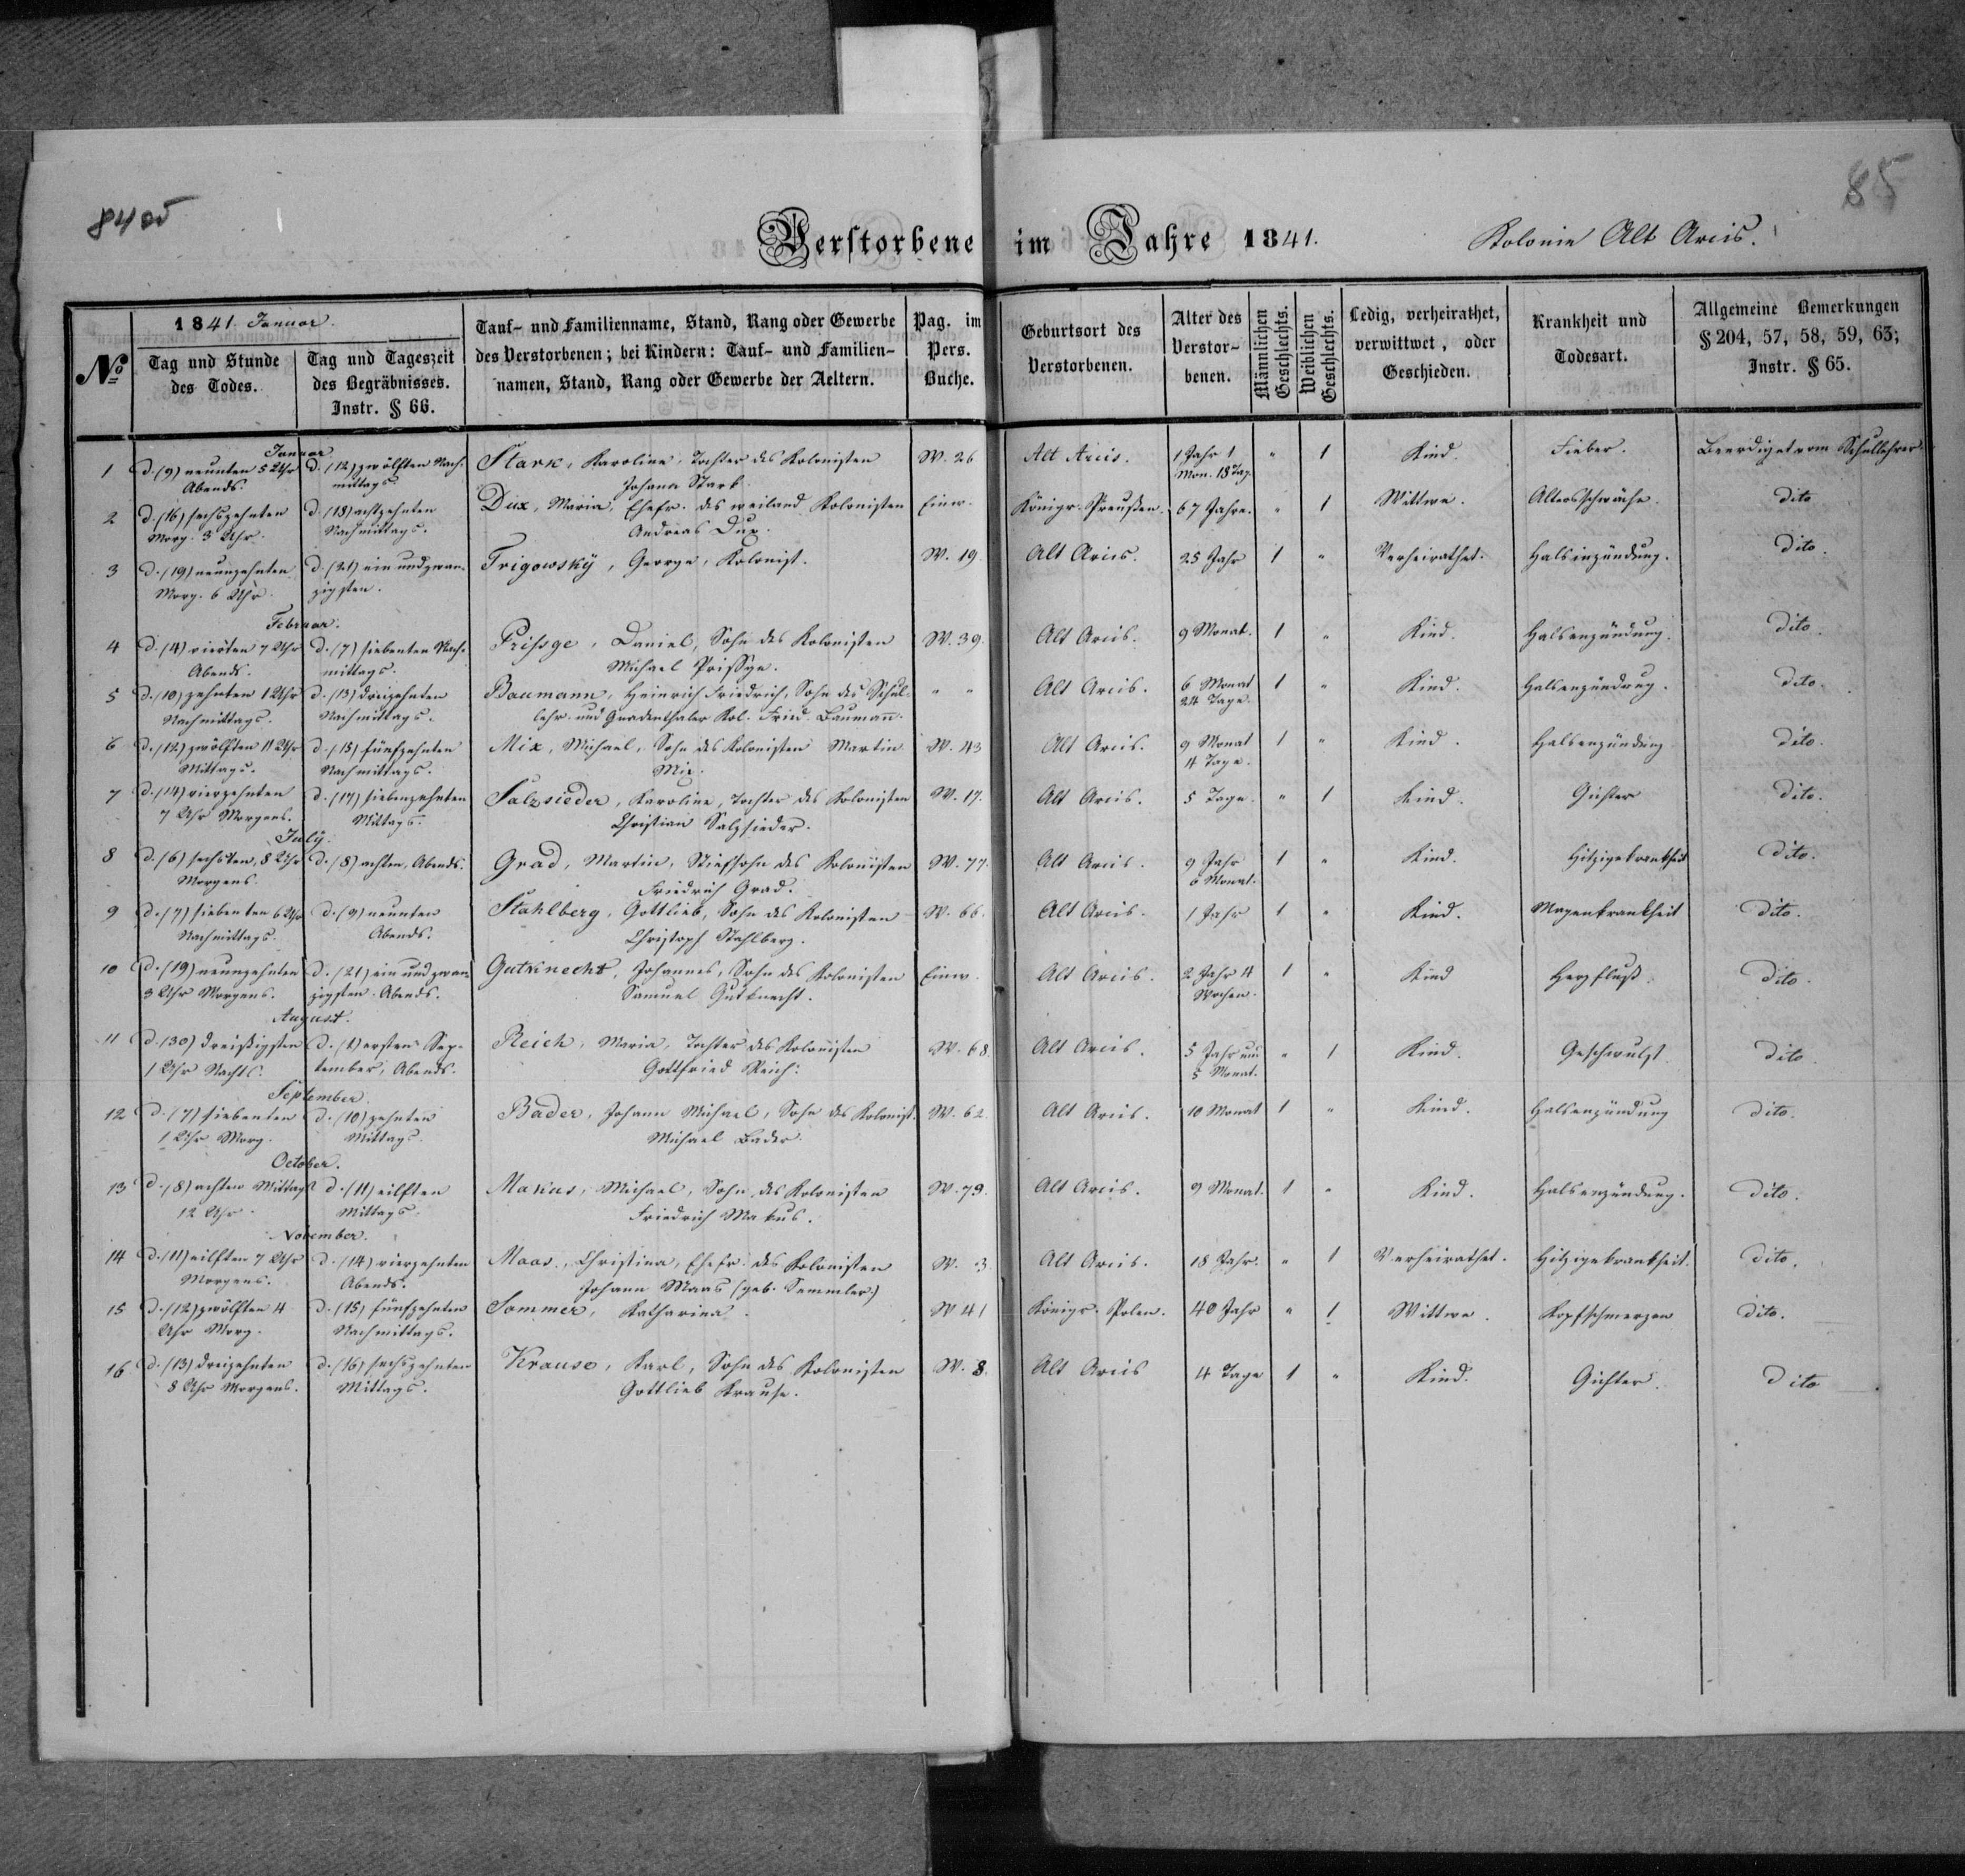 84 об
85
Verstorbene im Jahre 1841.
Kolonie Alt Arcis.
№
1841 Januar.
Tag und Stunde des Todes.
Tag und Tageszeit des Begräbnisses. Instr. § 66.
Tauf- und Familienname, Stand, Rang oder Gewerbe
des Verstorbenen; bei Kindern: Tauf- und Familien-
namen, Stand, Rang oder Gewerbe der Aeltern.
Pag. im Pers. Buche.
Geburtsort des Verstorbenen.
Alter des Verstor- benen.
Männlichen Geschlechts.
Weiblichen Geschlechts.
Ledig, verheirathet, verwittwet, oder Geschieden.
Krankheit und Todesart.
Allgemeine Bemerkungen § 204, 57, 58, 59, 63; Instr. § 65.
Januar
1 d. (9) neunten 5 Uhr d. (12) zwölften Nach- Stark, Karoline, Tochter des Kolonisten W. 26 Alt Arcis. 1 Jahr 1 " 1 Kind. Fieber. Beerdiget vom Schullehrer.
Abends. mittags Johann Stark. Mon. 18 Tag.
2 d. (16) sechszehnten d. (18) achtzehnten Dux, Maria, Ehefr. des weiland Kolonisten Einw. Königr. Preußen. 67 Jahre. " 1 Wittwe. Altersschwäche. dito
Morg. 3 Uhr. Nachmittags. Andreas Dux.
3 d. (19) neunzehnten d. (21) ein und zwan- Trigowskÿ, George, Kolonist. W. 19. Alt Arcis. 25 Jahr 1 " Verheirathet. Halsinzündung. dito.
Morg. 6 Uhr. zigsten.
Februar.
4 d. (4) vierten 7 Uhr d. (7) siebenten Nach- Prissge, Daniel, Sohn des Kolonisten W. 39. Alt Arcis. 9 Monat. 1 " Kind. Halsenzündung. dito.
Abends. mittags. Michael Prissge.
5 d. (10) zehnten 1 Uhr d. (13) dreizehnten Baumann, Heinrich Friedrich, Sohn des Schul- " " Alt Arcis. 6 Monat 1 " Kind. Halsenzündung. dito.
Nachmittags. Nachmittags. lehr. und Gnadenthaler Kol. Fried. Baumann. 24 Tage.
6 d. (12) zwölften 11 Uhr d. (15) fünfzehnten Mix, Michael, Sohn des Kolonisten Martin W. 43 Alt Arcis. 9 Monat 1 " Kind. Halsenzündung dito.
Mittags. Nachmittags. Mix. 4 Tage.
7 d. (14) vierzehnten d. (17) siebenzehnten Salzsieder, Karoline, Tochter des Kolonisten W. 17. Alt Arcis. 5 Tage. " 1 Kind. Gichter dito.
7 Uhr Morgens. Mittags. Christian Salzsieder.
Julÿ.
8 d. (6) sechsten, 8 Uhr d. (8) achten, Abends. Grad, Martin, Stiefsohn des Kolonisten W. 77. Alt Arcis. 9 Jahr 1 " Kind. Hitzigekrankheit dito.
Morgens. Friedrich Grad. 6 Monat.
9 d. (7) siebenten 6 Uhr d. (9) neunten Stahlberg, Gottlieb, Sohn des Kolonisten W. 66. Alt Arcis. 1 Jahr 1 " Kind. Magenkrankheit dito.
Nachmittags. Abends. Christoph Stahlberg.
10 d. (19) neunzehnten d. (21) ein und zwan- Gutknecht, Johannes, Sohn des Kolonisten Einw. Alt Arcis. 2 Jahr 4 1 " Kind Herzfluß. dito.
3 Uhr Morgens. zigsten Abends. Samuel Gutknecht. Wochen.
August.
11 d. (30) dreißigsten d. (1) ersten Sep- Reich, Maria, Tochter des Kolonisten W. 68. Alt Arcis. 5 Jahr und " 1 Kind. Geschwulst. dito
1 Uhr Nachts. tember, Abends. Gottfried Reich. 5 Monat.
September.
12 d. (7) siebenten d. (10) zehnten Bader, Johann Michael, Sohn des Kolonist. W. 62. Alt Arcis. 10 Monat 1 " Kind. Halsenzündung dito.
1 Uhr Morg. Mittags. Michael Bader.
October.
13 d. (8) achten Mittags d. (11) eilften Makus, Michael, Sohn des Kolonisten W. 79. Alt Arcis. 9 Monat. 1 " Kind. Halsenzündung. dito.
12 Uhr. Mittags. Friedrich Makus.
November.
14 d. (11) eilften 7 Uhr d. (14) vierzehnten Maas, Christina, Ehefr. des Kolonisten W. 3. Alt Arcis. 18 Jahr. " 1 Verheirathet. Hitzigekrankheit. dito.
Morgens. Abends. Johann Maas (geb. Semmler)
15 d. (12) zwölften 4 d. (15) fünfzehnten Sommer, Katharina. W 41 Königr. Polen. 40 Jahr " 1 Wittwe. Kopfschmerzen dito.
Uhr Morg. Nachmittags.
16 d. (13) dreizehnten d. (16) sechszehnten Krause, Karl, Sohn des Kolonisten W. 8. Alt Arcis 4 Tage 1 " Kind. Gichter. dito
8 Uhr Morgens. Mittags. Gottlieb Krause.